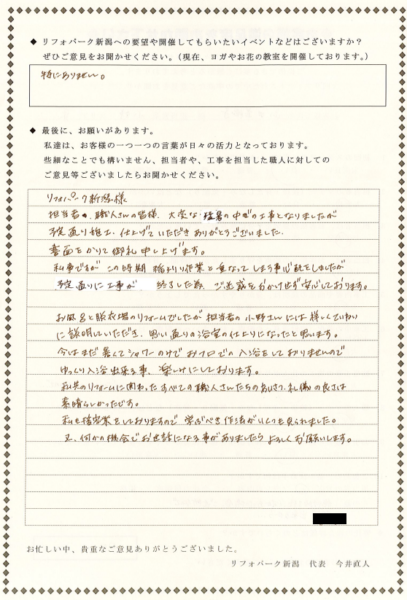 ◆ リフォパーク新潟への要望や開催してもらいたいイベントなどはございますか？
ぜひご意見をお聞かせください。（現在、ヨガやお花の教室を開催しております。）
特にありません。
◆ 最後に、お願いがあります。
私達は、お客様の一つ一つの言葉が日々の活力となっております。
些細なことでも構いません、担当者や、工事を担当した職人に対しての
ご意見等ございましたらお聞かせください。
リフォパーク新潟様
担当者、職人さんの皆様、大変な猛暑の中での工事となりましたが
予定通り担工、仕上げていただきありがとうございました。
書面をかりて御礼申し上げます。
私事ですがこの時期 稲刈り作業と重なってしまう事心配をしましたが
予定通りに工事が 終了した為 ご迷惑をおかけせず安心しております。
お風呂と脱衣場のリフォームでしたが担当者の小野さんには様しくていねい
に説明していただき、思い通りの浴室の仕上りになったと思います。
今はまだ暑くてシャワーのみで おうちでの入浴をしておりませんので
ゆっくり入浴出来る事、楽しみにしております。
私共のリフォームに関わったすべての職人さんたちの 礼儀の良さは
素晴らしかったです。
私も 業をしておりますので 学ぶべき作法がいくつも見られました。
又、何かの機会でお世話になる事がありましたらよろしくお願いします。
お忙しい中、貴重なご意見ありがとうございました。
リフォパーク新潟 代表 今井直人